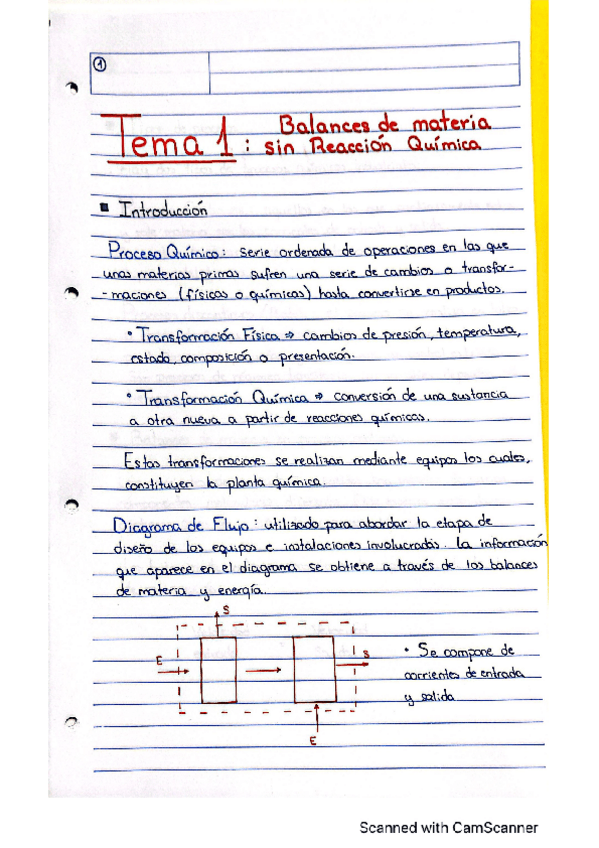 1
Tema 1: Balances de materia
sin Reacción Química
Introducción
Proceso Químico: serie ordenada de operaciones en las que
unas materias primas sufren una serie de cambios o transfor-
-maciones (físicas o químicas) hasta convertirse en productos.
• Transformación Física ⇒ cambios de presión, temperatura,
estado, composición o presentación.
• Transformación Química ⇒ conversión de una sustancia
a otra nueva a partir de reacciones químicas.
Estas transformaciones se realizan mediante equipos los cuales,
constituyen la planta química.
Diagrama de Flujo: utilizado para abordar la etapa de
diseño de los equipos e instalaciones involucradas. La información
que aparece en el diagrama se obtiene a través de los balances
de materia y energía.
S
E
S
E
• Se compone de
corrientes de entrada
y salida
Scanned with CamScanner